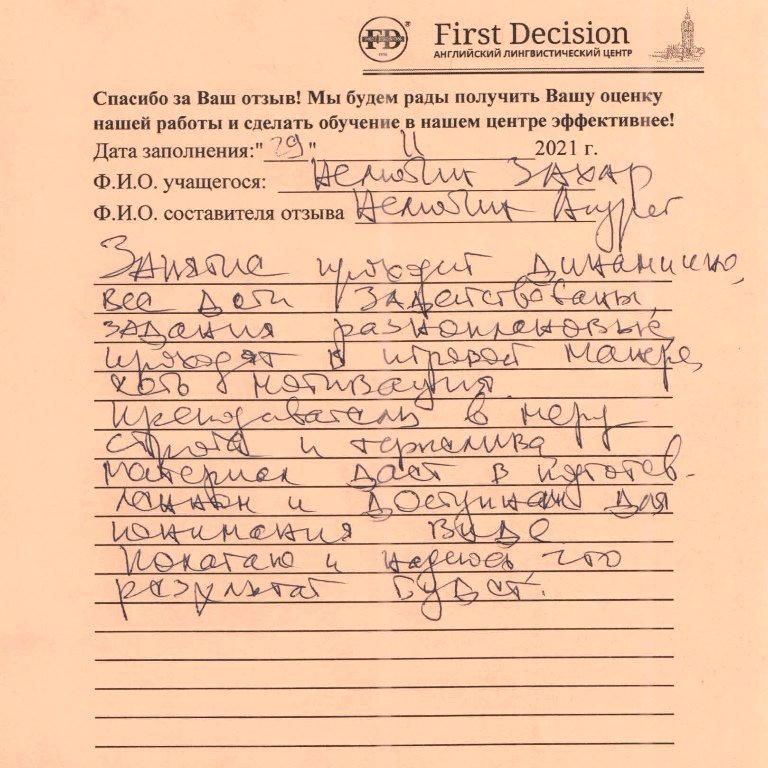 FD
First Decision
АНГЛИЙСКИЙ ЛИНГВИСТИЧЕСКИЙ ЦЕНТР
Спасибо за Ваш отзыв! Мы будем рады получить Вашу оценку
нашей работы и сделать обучение в нашем центре эффективнее!
Дата заполнения:"29" 11 2021 г.
Ф.И.О. учащегося: Захар
Ф.И.О. составителя отзыва
Занятие проходит динамично,
все дети задействованы,
задания разноплановые,
проходят в игровой манере,
есть мотивация.
Преподаватель в меру
строга и терпелива
Материал даст в подготов-
ленном и доступном для
понимания виде
Полагаю и надеюсь что
результат будет.